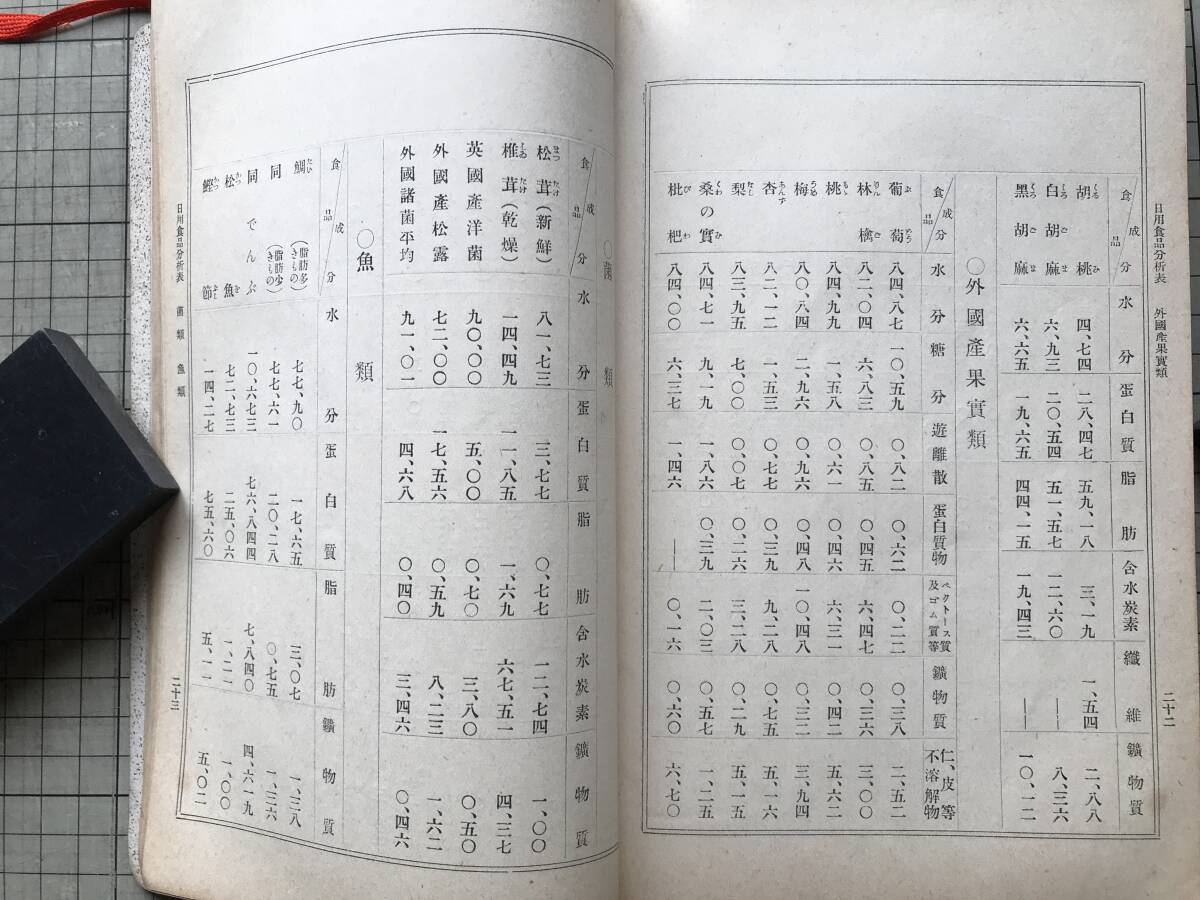 日用食品分析表 外國産果實類 二十二
食品 成分 水分 蛋白質 脂肪 含水炭素 纖維 鑛物質
胡桃 四、七四 二八、四七 五九、一八 三、一九 一、五四 二、八八
白胡麻 六、九三 二〇、五四 五一、五七 一二、六〇 ― 八、三六
黑胡麻 六、六五 一九、六五 四四、一五 一九、四三 ― 一〇、一二
〇外國產果實類
食品 成分 水分 糖分 遊離散 蛋白質物 ペクトース質及ゴム質等 鑛物質 仁、皮等不溶解物
葡萄 八四、八七 一〇、五九 〇、八二 〇、六二 〇、二二 〇、三八 二、五二
林檎 八二、〇四 六、八三 〇、八五 〇、四五 六、四七 〇、三六 三、〇〇
桃 八四、九九 一、五八 〇、六一 〇、四六 六、三一 〇、四二 五、六二
梅 八〇、八四 二、九六 〇、九六 〇、四八 一〇、四八 〇、三二 三、九四
杏 八二、一二 一、五三 〇、七七 〇、三九 九、二八 〇、七五 五、一六
梨 八三、九五 七、〇〇 〇、〇七 〇、二六 三、二八 〇、二九 五、一五
桑の實 八四、七一 九、一九 一、八六 〇、三九 二、〇三 〇、五七 一、二五
枇杷 八四、〇〇 六、三七 一、四六 ― 〇、一六 〇、六〇 六、七〇
〇菌類
食品 成分 水分 蛋白質 脂肪 含水炭素 鑛物質
松茸(新鮮) 八一、七三 三、七七 〇、七七 一二、七四 一、〇〇
椎茸(乾燥) 一四、四九 一一、八五 一、六九 六七、五一 四、三七
英國產洋菌 九〇、〇〇 五、〇〇 〇、七〇 三、八〇 〇、五〇
外國產松露 七二、〇〇 一七、五六 〇、五九 八、二三 一、六二
外國諸菌平均 九一、〇一 四、六八 〇、四〇 三、四六 〇、四六
〇魚類
食品 成分 水分 蛋白質 脂肪 鑛物質
鯛(脂肪多きもの) 七七、九〇 一七、六五 三、〇七 一、三八
同(脂肪少きもの) 七七、六一 二〇、二八 〇、七五 一、三六
同でんぶ 一〇、六七三 七六、八四四 七、八四〇 四、六一九
松魚 七二、七三 二五、〇六 一、二一 一、〇〇
鰹節 一四、二七 七五、六〇 五、一一 五、〇二
日用食品分析表 菌類 魚類 二十三